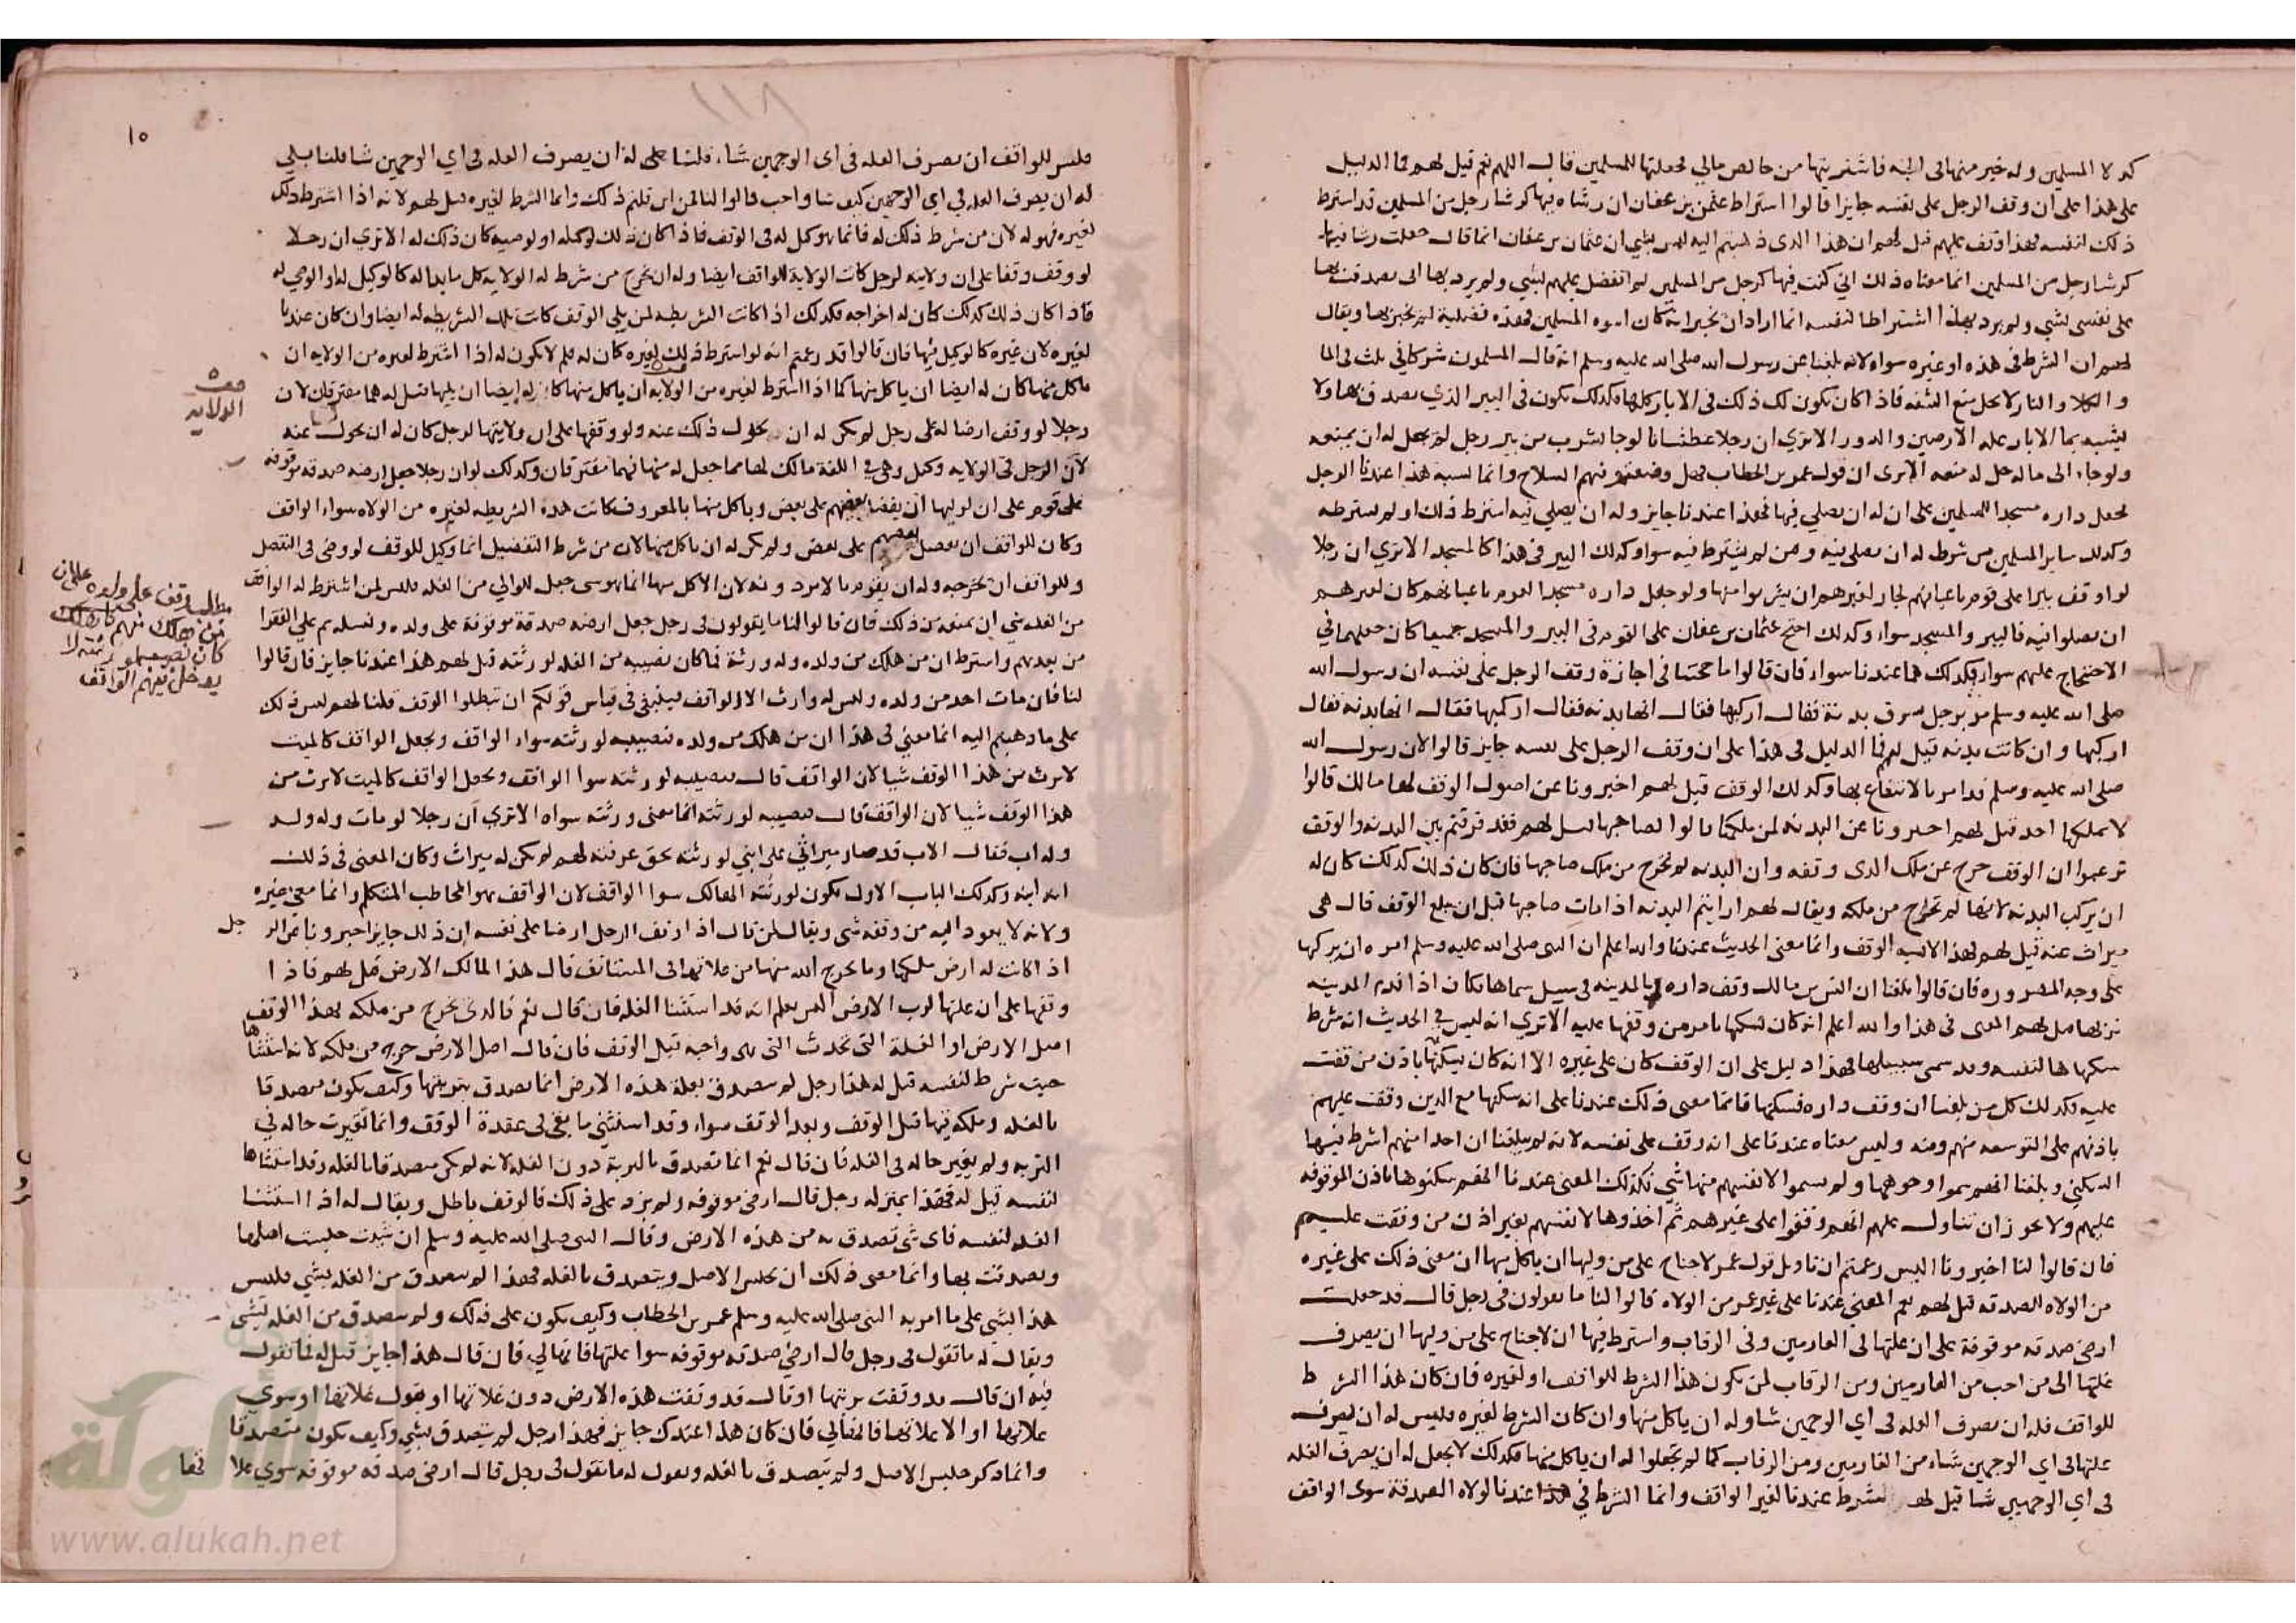 كدلا المسلمين وله خير منها في الجنة فاشتريتها من خالص مالي فجعلتها للمسلمين قال اللهم نعم قيل لهم فما الدليل
على هذا على ان وقف الرجل على نفسه جايز قالوا اشتراط عثمن بن عفان ان رشاه فيها كرشا رجل من المسلمين قد اشترط
ذلك لنفسه فهذا وقف عليهم قيل لهم ان هذا الذي ذهبتم اليه ليس بشي ان عثمان بن عفان انما قال جعلت رشا فيها
كرشا رجل من المسلمين انما معناه ذلك اني كنت فيها كرجل من المسلمين لم اتفضل عليهم بشي ولم يرد بها اني تصدقت بها
على نفسي بشي ولم يرد بهذا اشتراطا لنفسه انما اراد ان يخبر انه كان اسوه المسلمين فهذه فضيلة لم يخبر بها ويقال
لهم ان الشرط في هذه او غيره سواء لانه بلغنا عن رسول الله صلى الله عليه وسلم انه قال المسلمون شركا في ثلث في الما
والكلا والنار لا يحل منع الشفه فاذا كان يكون لك ذلك في الابار كلها فكذلك يكون في البير الذي تصدق بها ولا
يشبه بما الابار غلة الارضين والدور الا ترى ان رجلا عطشانا لو جا يشرب من بير رجل لم يحل له ان يمنعه
ولو جاء الى ماله حل له منعه الا ترى ان قول عمر بن الخطاب فهل وضعتم فيهم السلاح وانما يشبه هذا عندنا الرجل
يجعل داره مسجدا للمسلمين على ان له ان يصلي فيها فهذا عندنا جايز وله ان يصلي فيه اشترط ذلك او لم يشترطه
وكذلك ساير المسلمين من شرط له ان يصلي فيه ومن لم يشترط فيه سوا وكذلك البير في هذا كالمسجد الا ترى ان رجلا
لو اوقف بيرا على قوم باعيانهم لجاز لغيرهم ان يشربوا منها ولو جعل داره مسجدا لقوم باعيانهم كان لغيرهم
ان يصلوا فيه فالبير والمسجد سواء وكذلك احتج عثمان بن عفان على القوم في البير والمسجد جميعا كان جعلهما في
الاحتجاج عليهم سواء فكذلك هما عندنا سواء فان قالوا ما حجتنا في اجازة وقف الرجل على نفسه ان رسول الله
صلى الله عليه وسلم مر برجل يسوق بدنة فقال اركبها فقال انها بدنه فقال اركبها فقال انها بدنة فقال
اركبها وان كانت بدنه قيل لهم فما الدليل في هذا على ان وقف الرجل على نفسه جايز قالوا لان رسول الله
صلى الله عليه وسلم قد امر بالانتفاع بها وكذلك الوقف قيل لهم اخبرونا عن اصول الوقف لها مالك قالوا
لا يملكها احد قيل لهم اخبرونا عن البدنة لمن ملكها قالوا لصاحبها قيل لهم فقد فرقتم بين البدنه والوقف
ترعموا ان الوقف خرج عن ملك الذي وقفه وان البدنه لم تخرج من ملك صاحبها فان كان ذلك كذلك كان له
ان يركب البدنه لانها لم تخرج من ملكه ويقال لهم ارايتم البدنه اذا مات صاحبها قبل ان يبلغ الوقف قال هي
ميراث عنه قيل لهم فهذا لا يشبه الوقف وانما معنى الحديث عندنا والله اعلم ان النبي صلى الله عليه وسلم امره ان يركبها
على وجه الضروره فان قالوا بلغنا ان انس بن مالك وقف داره بالمدينه في سبيل سماها فكان اذا قدم المدينه
نزلها قيل لهم المعنى في هذا والله اعلم انه كان يسكنها بامر من وقفها عليه الا ترى انه ليس في الحديث انه شرط
سكناها لنفسه وقد سمى سبيلها فهذا دليل على ان الوقف كان على غيره الا انه كان يسكنها باذن من وقفت
عليه فكذلك كل من بلغنا ان وقف داره فسكنها فانما معنى ذلك عندنا على انه سكنها مع الذين وقفت عليهم
باذنهم على التوسعه منهم ومنه وليس معناه عندنا على انه وقف على نفسه لانه لم يبلغنا ان احدا منهم اشترط فيها
السكني وبلغنا انهم سموا وجوهها ولم يسموا لانفسهم منها شي فكذلك المعنى عندنا انهم سكنوها باذن الموقوفه
عليهم ولا يجوز ان نتاول عليهم انهم وقفوا على غيرهم ثم اخذوها لانفسهم بغير اذن من وقفت عليهم
فان قالوا لنا اخبرونا اليس زعمتم ان تاويل قول عمر لا جناح على من وليها ان ياكل منها ان معنى ذلك على غيره
من الولاه الصدقه قيل لهم نعم المعنى عندنا على غير عمر من الولاه قالوا لنا ما تقولون في رجل قال قد جعلت
ارضي صدقه موقوفة على ان غلتها في الغارمين وفي الرقاب واشترط فيها ان لا جناح على من وليها ان يصرف
غلتها الى من احب من الغارمين ومن الرقاب لمن يكون هذا الشرط للواقف او لغيره فان كان هذا الشرط
للواقف فله ان يصرف الغله في اي الوجهين شا وله ان ياكل منها وان كان الشرط لغيره فليس له ان يصرف
غلتها في اي الوجهين شاء من الغارمين ومن الرقاب كما لم تجعلوا له ان ياكل منها فكذلك لا يجعل له ان يصرف الغله
في اي الوجهين شا قيل لهم الشرط عندنا لغير الواقف وانما الشرط في هذا عندنا لولاه الصدقة سوى الواقف
١١٨
١٥
فليس للواقف ان يصرف الغله في اي الوجهين شاء قلنا على له ان يصرف الغله في اي الوجهين شا قلنا بلي
له ان يصرف الغله في اي الوجهين كيف شا واحب قالوا لنا فمن اين قلتم ذلك وانما الشرط لغيره قيل لهم لانه اذا اشترط ذلك
لغيره فهو له لان من شرط ذلك له فانما هو وكيل له في الوقف فاذا كان ذلك لوكيله او لوصيه كان ذلك له الا ترى ان رجلا
لو وقف وقفا على ان ولايته لرجل كانت الولاية للواقف ايضا وله ان يخرج من شرط له الولايه كل ما بدا له كالوكيل له او الوصي له
فاذا كان ذلك كذلك كان له اخراجه فكذلك اذا كانت الشريطه لمن يلي الوقف كانت تلك الشريطه له ايضا وان كان عندنا
لغيره لان غيره كالوكيل فيها فان قالوا قد زعمتم انه لو اشترط ذلك لغيره كان له فلم لا يكون له اذا اشترط لغيره من الولايه ان
ياكل منها كان له ايضا ان ياكل منها كما اذا اشترط لغيره من الولايه ان ياكل منها كان له ايضا ان يليها قيل له هما مفترقان لان
رجلا لو وقف ارضا له على رجل لم يكن له ان يحول ذلك عنه ولو وقفها على ان ولايتها لرجل كان له ان يحول عنه
لان الرجل في الولايه وكيل وهي في الغلة مالك لها مما جعل له منها فهما مفترقان وكذلك لو ان رجلا جعل ارضه صدقه موقوفه
على قوم على ان لوليها ان يفضل بعضهم على بعض وياكل منها بالمعروف كانت هذه الشريطه لغيره من الولاه سواء الواقف
وكان للواقف ان يفضل بعضهم على بعض ولم يكن له ان ياكل منها لان من شرط التفضيل انما وكيل للوقف لو وصي في التفضل
وللواقف ان يخرجه وله ان يقوم بالامر دونه لان الاكل منها انما هو شي جعل للوالي من الغله فليس لمن اشترط له الواقف
من الغله شي ان يمنعه من ذلك فان قالوا لنا ما يقولون في رجل جعل ارضه صدقة موقوفة على ولده ونسله ثم على الفقرا
من بعدهم واشترط ان من هلك من ولده وله ورثة فما كان نصيبه من الغله لورثته قيل لهم هذا عندنا جايز فان قالوا
لنا فان مات احد من ولده وليس له وارث الا الواقف فينبغي في قياس قولكم ان تبطلوا الوقف قلنا لهم ليس ذلك
على ما ذهبتم اليه انما معني في هذا ان من هلك من ولده فنصيبه لورثته سواء الواقف ويجعل الواقف كالميت
لا يرث من هذا الوقف شيا لان الواقف قال فنصيبه لورثته سوا الواقف ويجعل الواقف كالميت لا يرث من
هذا الوقف شيا لان الواقف قال فنصيبه لورثته انما معنى ورثته سواه الا ترى ان رجلا لو مات وله ولد
وله اب فقال الاب قد صار ميراثي على ابني لورثته بحق عرفته لهم لم يكن له ميراث وكان المعنى في ذلك
انه ابنه وكذلك الباب الاول يكون لورثته الهالك سوا الواقف لان الواقف هو المخاطب المتكلم وانما معنى غيره
ولانه لا يعود اليه من وقفه شي ويقال لمن قال اذا وقف الرجل ارضا على نفسه ان ذلك جايز اخبرونا عن الرجل
اذا كانت له ارض ملكها وما يخرج الله منها من غلاتها في المستانف قال هذا لمالك الارض قيل لهم فاذا
وقفها على ان غلتها لرب الارض اليس يعلم انه قد استثنا الغله فان قال نعم فالذي يخرج من ملكه بهذا الوقف
اصل الارض او الغلة التي تحدث التي هي واجبه قبل الوقف فان قال اصل الارض خرج من ملكه لانه استثناها
حيث شرط لنفسه قيل له هذا رجل لم يتصدق بغلة هذه الارض انما تصدق بتربتها وكيف يكون متصدقا
بالغله وملكه فيها قبل الوقف وبعد الوقف سواء وقد استثني ما بقي في عقدة الوقف وانما تغيرت حاله في
التربه ولم يتغير حاله في الغله فان قال نعم انما تصدق بالتربة دون الغله لانه لم يكن متصدقا بالغله وقد استثناها
لنفسه قيل له فهذا بمنزله رجل قال ارضي موقوفه ولم يزد على ذلك فالوقف باطل ويقال له اذا استثنا
الغله لنفسه فاي شي تصدق به من هذه الارض وقال النبي صلى الله عليه وسلم ان شيت حبست اصلها
وتصدقت بها وانما معنى ذلك ان يحبس الاصل ويتصدق بالغله فهذا لم يتصدق من الغله بشي فليس
هذا الشي على ما امر به النبي صلى الله عليه وسلم عمر بن الخطاب وكيف يكون على ذلك ولم يتصدق من الغله بشي
ويقال له ما تقول في رجل قال ارضي صدقه موقوفه سوا غلتها فانها لي فان قال هذا جايز قيل له فما تقول
فيه ان قال قد وقفت تربتها او قال قد وقفت هذه الارض دون غلاتها او يقول غلاتها او سوي
غلاتها او الا غلاتها فانها لي فان كان هذا عندك جايز فهذا رجل لم يتصدق بشي وكيف يكون متصدقا
وانما ذكر حبس الاصل ولم يتصدق بالغله ويقول له ما تقول في رجل قال ارضي صدقه موقوفه سوي غلا تها
قف
الولايه
مطلب وقف على ولده على ان
من هلك منهم
كان نصيبه لورثته لا
يدخل فيهم الواقف
الألوكة
www.alukah.net